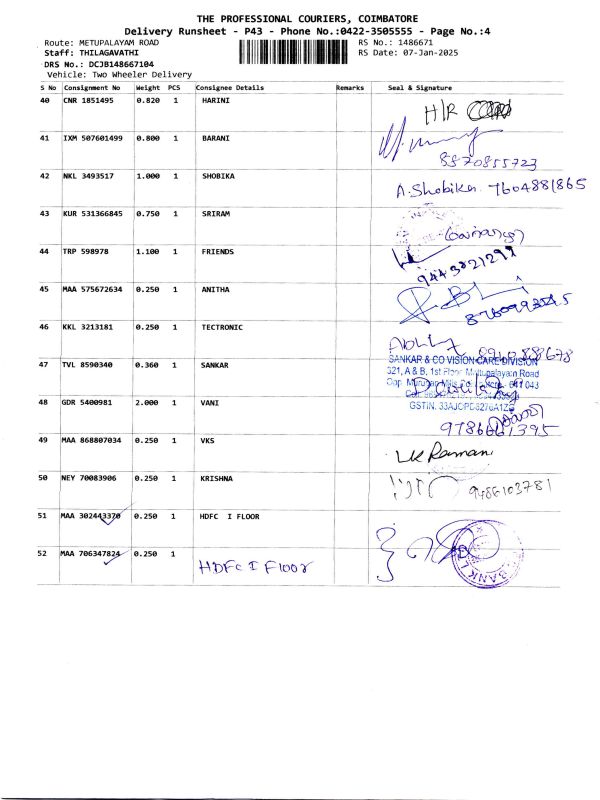 THE PROFESSIONAL COURIERS, COIMBATORE
Delivery Runsheet - P43 - Phone No.:0422-3505555 - Page No.:4
Route: METUPALAYAM ROAD RS No.: 1486671
Staff: THILAGAVATHI RS Date: 07-Jan-2025
DRS No.: DCJB148667104
Vehicle: Two Wheeler Delivery
S No Consignment No Weight PCS Consignee Details Remarks Seal & Signature
40 CNR 1851495 0.820 1 HARINI H/R
41 IXM 507601499 0.800 1 BARANI
8870855723
42 NKL 3493517 1.000 1 SHOBIKA A.Shobika 7604881865
43 KUR 531366845 0.750 1 SRIRAM
44 TRP 598978 1.100 1 FRIENDS
45 MAA 575672634 0.250 1 ANITHA
46 KKL 3213181 0.250 1 TECTRONIC
47 TVL 8590340 0.360 1 SANKAR
SANKAR & CO VISION CARE DIVISION
321, A & B, 1st Floor Mettupalayam Road
48 GDR 5400981 2.000 1 VANI
GSTIN. 33AJOPD8276A1ZG
9786661395
49 MAA 868807034 0.250 1 VKS
50 NEY 70083906 0.250 1 KRISHNA 9486103781
51 MAA 302443370 0.250 1 HDFC I FLOOR
52 MAA 706347824 0.250 1 HDFC I Floor